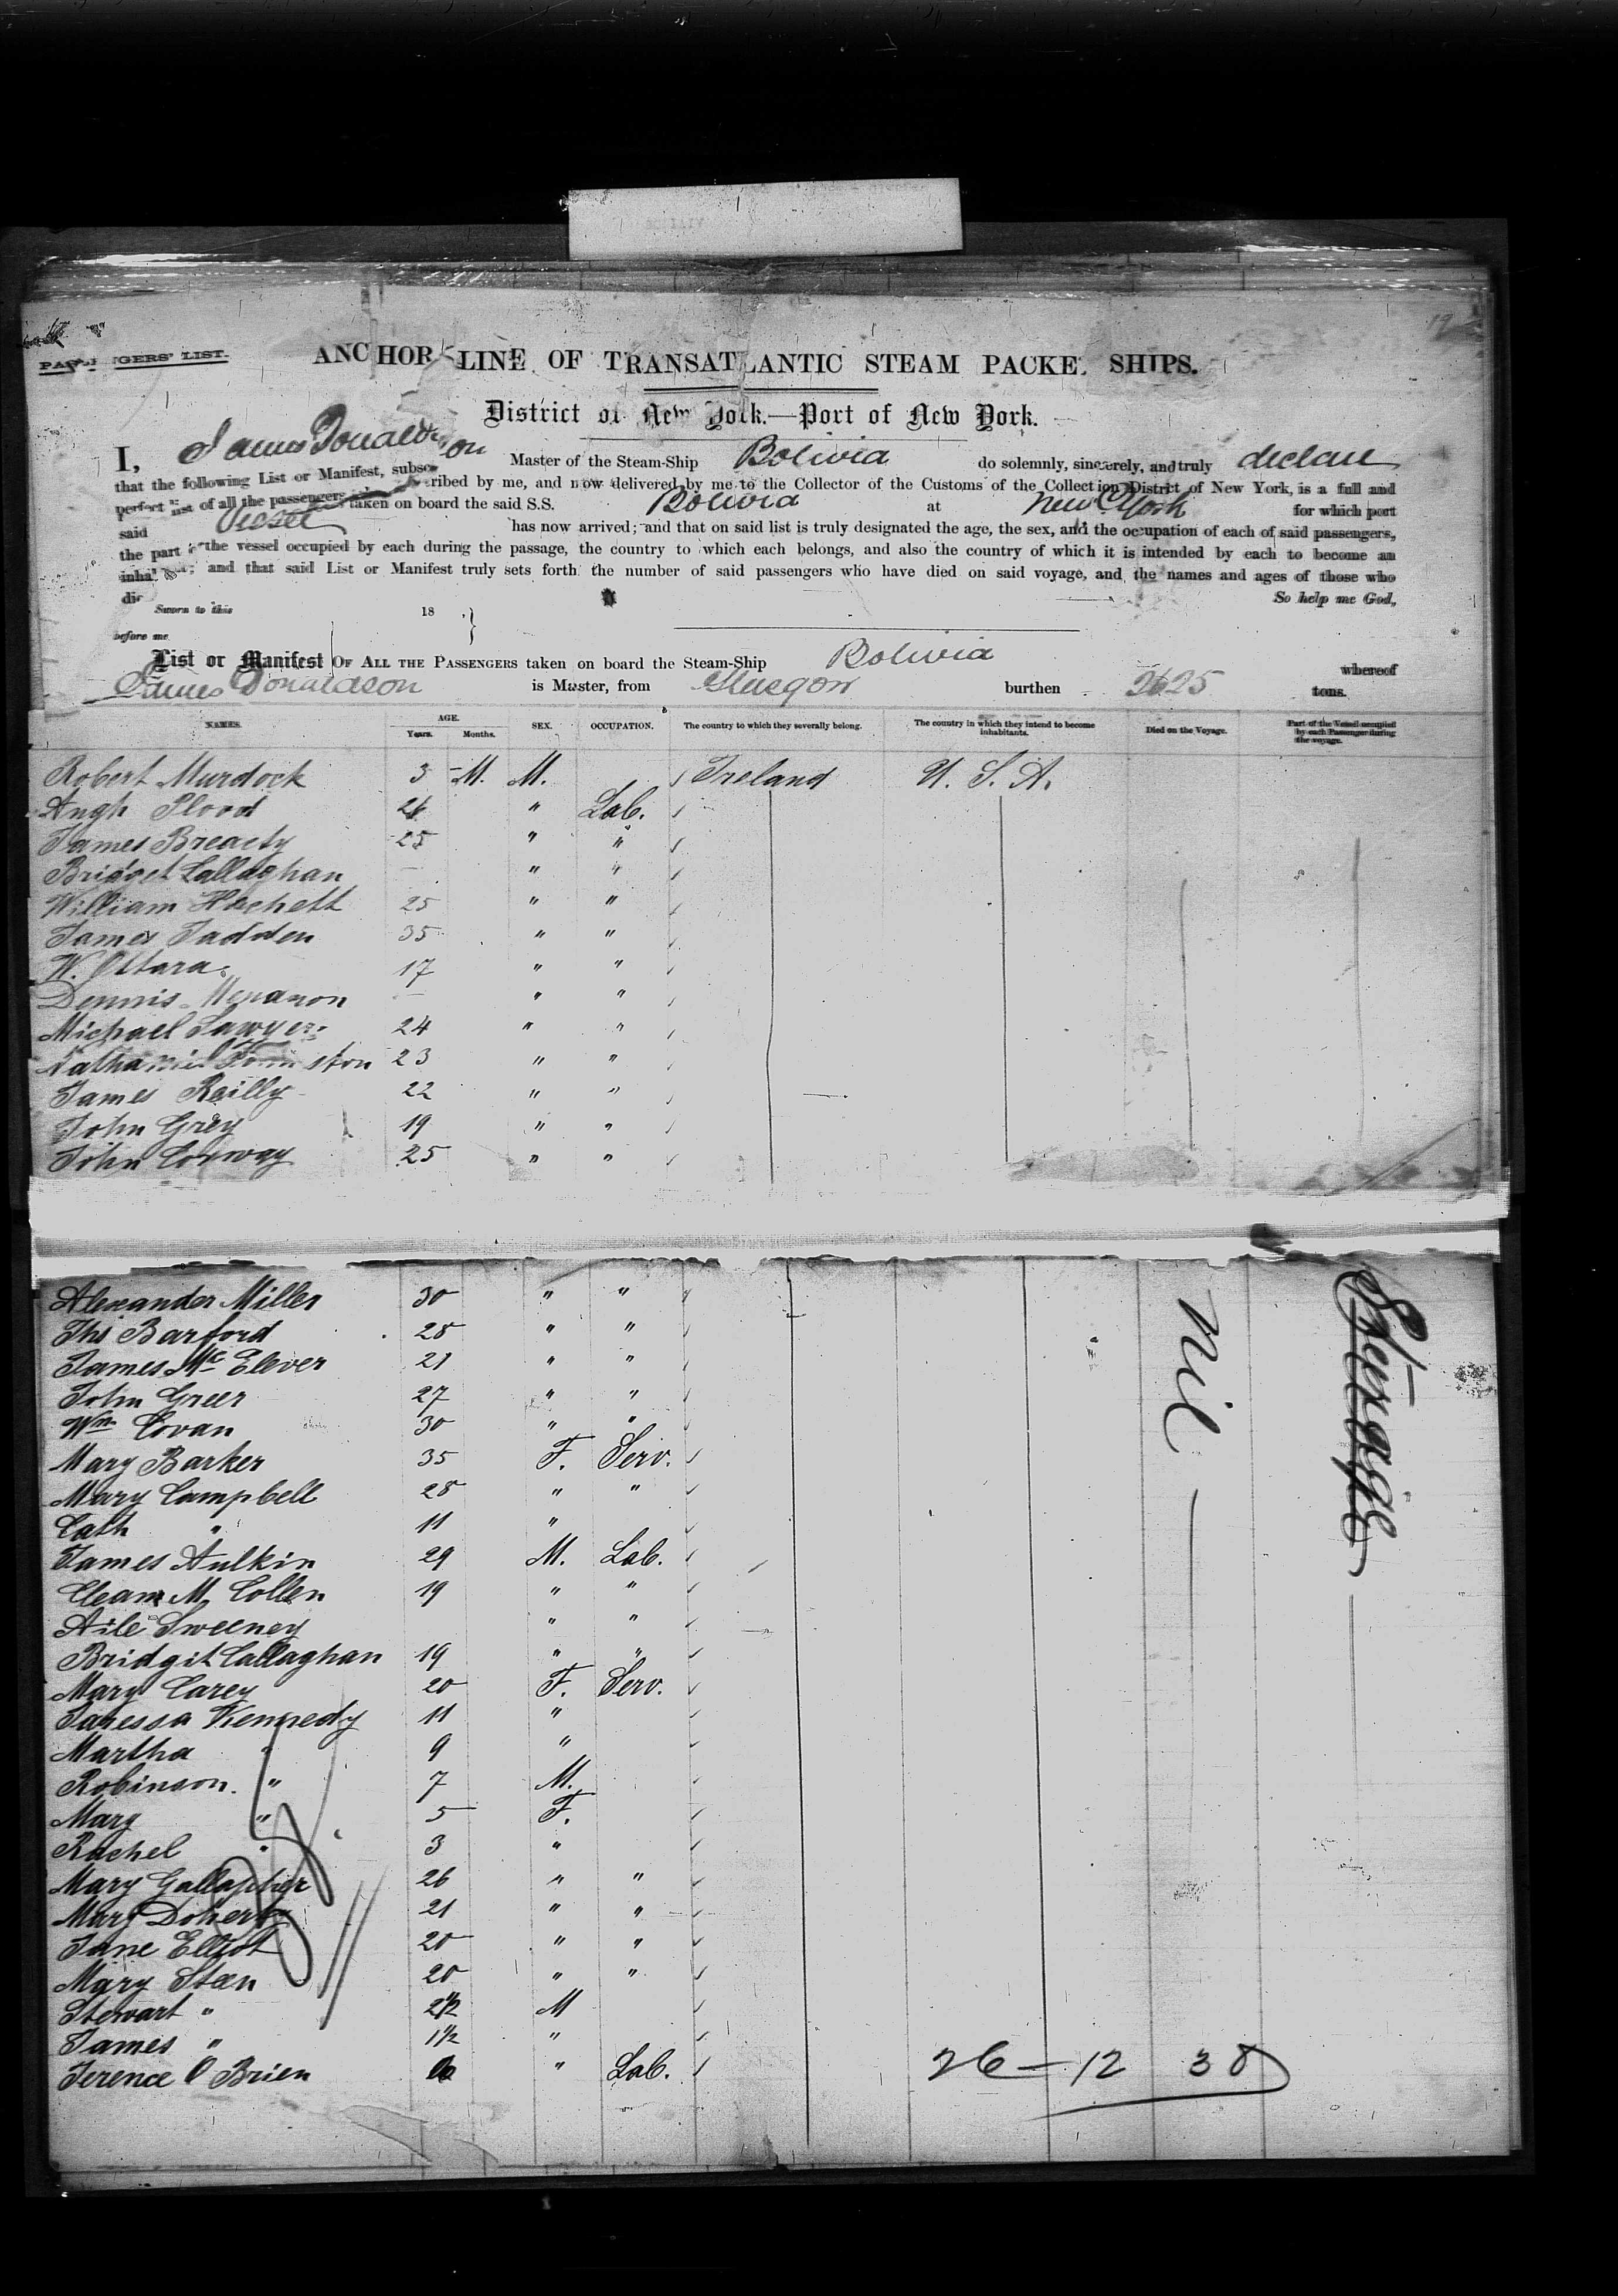 19
PASSENGERS' LIST.
ANCHOR LINE OF TRANSATLANTIC STEAM PACKE. SHIPS.
District of New York.—Port of New York.
I, James Donaldson Master of the Steam-Ship Bolivia do solemnly, sincerely, and truly declare
that the following List or Manifest, subscribed by me, and now delivered by me to the Collector of the Customs of the Collection District of New York, is a full and
perfect list of all the passengers taken on board the said S.S. Bolivia at New York for which port
said Vessel has now arrived; and that on said list is truly designated the age, the sex, and the occupation of each of said passengers,
the part of the vessel occupied by each during the passage, the country to which each belongs, and also the country of which it is intended by each to become an
inha; and that said List or Manifest truly sets forth the number of said passengers who have died on said voyage, and the names and ages of those who
die So help me God,
Sworn to this 18 }
before me
List or Manifest OF ALL THE PASSENGERS taken on board the Steam-Ship Bolivia whereof
James Donaldson is Master, from Glasgow burthen 2625 tons.
NAMES. AGE. Years. Months. SEX. OCCUPATION. The country to which they severally belong. The country in which they intend to become inhabitants. Died on the Voyage. Part of the Vessel occupied by each Passenger during the voyage.
Robert Murdock 3 - M. M. Ireland U. S. A.
Angh Flood 26 " Lab.
James Breacty 25 " "
Bridget Callaghan — " "
William Hackett 25 " "
James Fadden 35 " "
W. Ottara. 17 " "
Dennis — " "
Michael Sawyer 24 " "
23 " "
James Reilly 22 " "
John Grey 19 " "
John Conway 25 " "
Alexander Miller 30 " "
Ths Barford 28 " "
James Mc Elever 21 " "
John Greer 27 " "
Wm Covan 30 " "
Mary Barker 35 F. Serv.
Mary Campbell 28 " "
Cath " 11 "
James Aulkin 29 M. Lab.
M. Collen 19 " "
Aile Sweeney " "
Bridgit Callaghan 19 " "
Mary Carey 20 F. Serv.
Taressa Kennedy 11 "
Martha " 9 "
Robinson " 7 M.
Mary " 5 F.
Rachel " 3 "
Mary Gallagher 26 " "
Mary Doherty 21 " "
Jane Elliot 20 " "
Mary Steen 20 " "
Stewart " 2½ M
James " 1½ "
Terence O Brien " Lab.
nil
Steerage
26 — 12 38